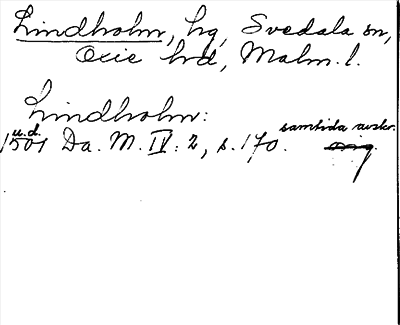 Lindholm, hg, Svedala sn,
Oxie hd, Malm. l.
Lindholm:
u.d.
samtida avskr.
1501 Da. M. IV: 2, s. 170. orig.